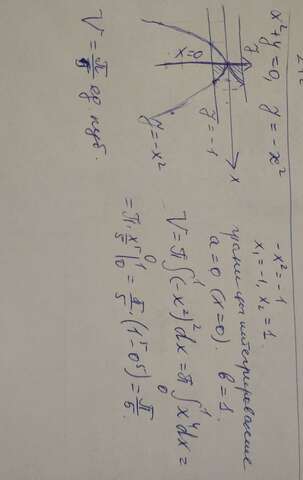 x²+y=0, y=-x²
y
x=0
x
y=-1
y=-x²
-x²=-1
x₁=-1, x₂=1.
границы интегрирование
a=0 (x=0). b=1.
V=π∫₀¹(-x²)²dx=π∫₀¹x⁴dx=
=π·x⁵/5|₀¹=π/5·(1⁵-0⁵)=π/5.
V=π/5 ед. куб.